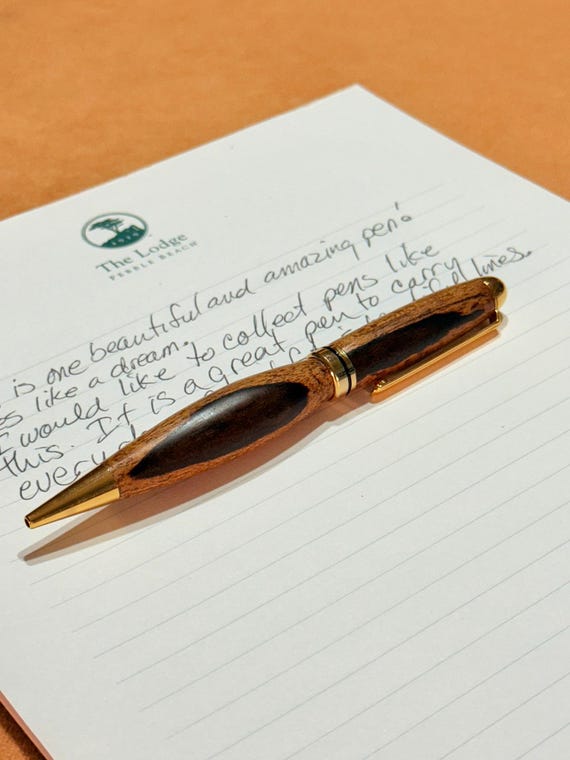 1919
The Lodge
PEBBLE BEACH
is one beautiful and amazing pen!
s like a dream.
I would like to collect pens like
this. It is a great pen to carry
every lines.